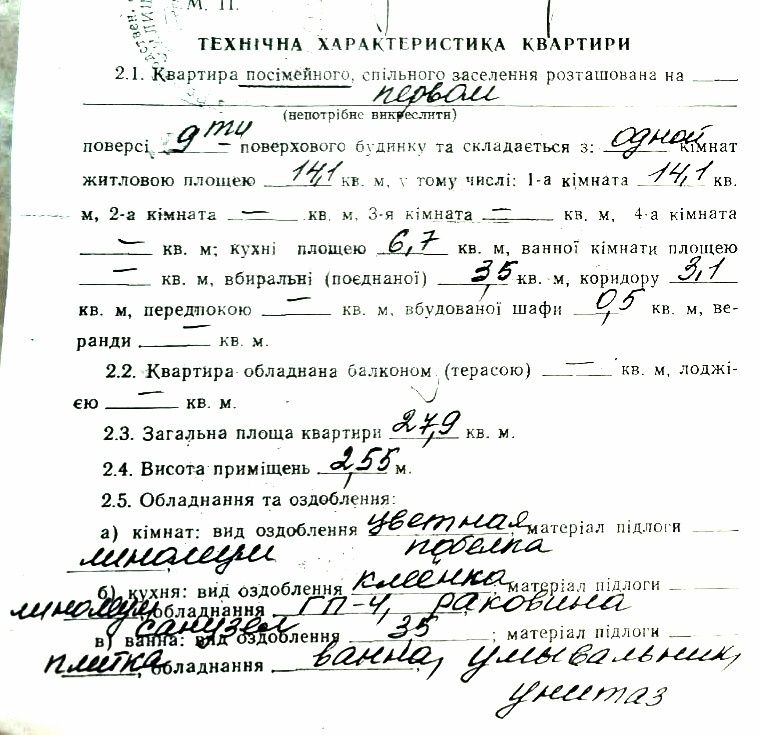 М. П.
ТЕХНІЧНА ХАРАКТЕРИСТИКА КВАРТИРИ
2.1. Квартира посімейного, спільного заселення розташована на
первом
(непотрібне викреслити)
поверсі 9ти – поверхового будинку та складається з: одной кімнат
житловою площею 14,1 кв. м, у тому числі: 1-а кімната 14,1 кв.
м, 2-а кімната — кв. м, 3-я кімната — кв. м, 4-а кімната
— кв. м; кухні площею 6,7 кв. м, ванної кімнати площею
— кв. м, вбиральні (поєднаної) 3,5 кв. м, коридору 3,1
кв. м, передпокою — кв. м, вбудованої шафи 0,5 кв. м, ве-
ранди — кв. м.
2.2. Квартира обладнана балконом (терасою) — кв. м, лоджі-
єю — кв. м.
2.3. Загальна площа квартири 27,9 кв. м.
2.4. Висота приміщень 2,55 м.
2.5. Обладнання та оздоблення:
а) кімнат: вид оздоблення цветная матеріал підлоги
линолеум побелка
б) кухня: вид оздоблення клеёнка матеріал підлоги
линолеум обладнання ГП-4, раковина
санузел
в) ванна: вид оздоблення 3,5; матеріал підлоги
плитка, обладнання ванна, умывальник,
унитаз